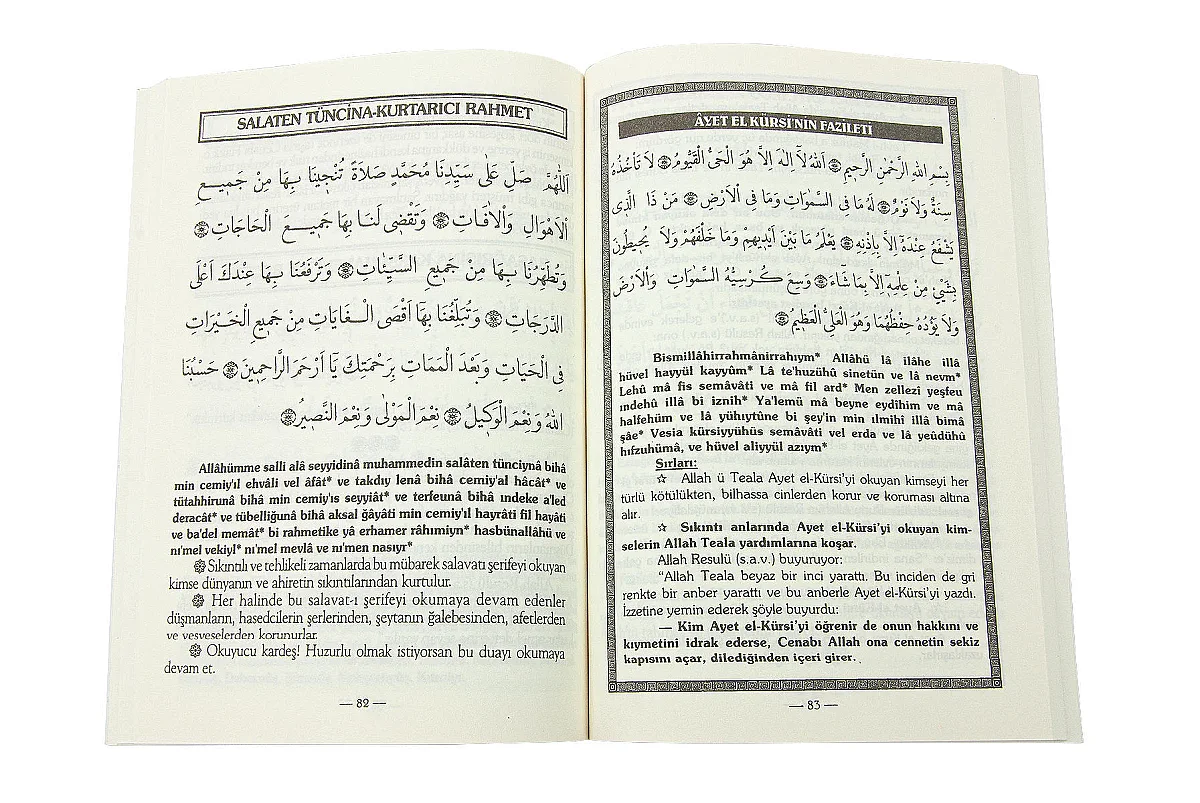 SALATEN TÜNCİNA-KURTARICI RAHMET
اَللّٰهُمَّ صَلِّ عَلٰى سَيِّدِنَا مُحَمَّدٍ صَلَاةً تُنْجِينَا بِهَا مِنْ جَمِيعِ
الْاَهْوَالِ وَالْاٰفَاتِ ۞ وَتَقْضِى لَنَا بِهَا جَمِيعَ الْحَاجَاتِ ۞
وَتُطَهِّرُنَا بِهَا مِنْ جَمِيعِ السَّيِّئَاتِ ۞ وَتَرْفَعُنَا بِهَا عِنْدَكَ اَعْلَى
الدَّرَجَاتِ ۞ وَتُبَلِّغُنَا بِهَا اَقْصَى الْغَايَاتِ مِنْ جَمِيعِ الْخَيْرَاتِ
فِى الْحَيَاتِ وَبَعْدَ الْمَمَاتِ بِرَحْمَتِكَ يَا اَرْحَمَ الرَّاحِمِينَ ۞ حَسْبُنَا
اللهُ وَنِعْمَ الْوَكِيلُ ۞ نِعْمَ الْمَوْلٰى وَنِعْمَ النَّصِيرُ ۞
Allâhümme salli alâ seyyidinâ muhammedin salâten tünciynâ bihâ
min cemiy'ıl ehvâli vel âfât* ve takdıy lenâ bihâ cemiy'al hâcât* ve
tütahhirunâ bihâ min cemiy'ıs seyyiât* ve terfeunâ bihâ ındeke a'led
deracât* ve tübelliğunâ bihâ aksal ğâyâti min cemiy'ıl hayrâti fil hayâti
ve ba'del memât* bi rahmetike yâ erhamer râhımiyn* hasbünallâhü ve
nı'mel vekiyl* nı'mel mevlâ ve nı'men nasıyr*
۞ Sıkıntılı ve tehlikeli zamanlarda bu mübarek salavatı şerifeyi okuyan
kimse dünyanın ve ahiretin sıkıntılarından kurtulur.
۞ Her halinde bu salavat-ı şerifeyi okumaya devam edenler
düşmanların, hasedcilerin şerlerinden, şeytanın ğalebesinden, afetlerden
ve vesveselerden korunurlar.
۞ Okuyucu kardeş! Huzurlu olmak istiyorsan bu duayı okumaya
devam et.
— 82 —
ÂYET EL KÜRSİ'NİN FAZİLETİ
بِسْمِ اللهِ الرَّحْمٰنِ الرَّحِيمِ ۞ اَللهُ لَا اِلٰهَ اِلَّا هُوَ الْحَىُّ الْقَيُّومُ ۞ لَا تَأْخُذُهُ
سِنَةٌ وَلَا نَوْمٌ ۞ لَهُ مَا فِى السَّمٰوَاتِ وَمَا فِى الْاَرْضِ ۞ مَنْ ذَا الَّذِى
يَشْفَعُ عِنْدَهُ اِلَّا بِاِذْنِهِ ۞ يَعْلَمُ مَا بَيْنَ اَيْدِيهِمْ وَمَا خَلْفَهُمْ وَلَا يُحِيطُونَ
بِشَىْءٍ مِنْ عِلْمِهِ اِلَّا بِمَا شَاءَ ۞ وَسِعَ كُرْسِيُّهُ السَّمٰوَاتِ وَالْاَرْضَ
وَلَا يَؤُدُهُ حِفْظُهُمَا وَهُوَ الْعَلِىُّ الْعَظِيمُ ۞
Bismillâhirrahmânirrahıym* Allâhü lâ ilâhe illâ
hüvel hayyül kayyûm* Lâ te'huzühû sinetün ve lâ nevm*
Lehû mâ fis semâvâti ve mâ fil ard* Men zellezi yeşfeu
ındehû illâ bi iznih* Ya'lemü mâ beyne eydîhim ve mâ
halfehüm ve lâ yühıytûne bi şey'in min ılmihî illâ bimâ
şâe* Vesia kürsiyyühüs semâvâti vel erda ve lâ yeûdühû
hıfzuhümâ, ve hüvel aliyyül azıym*
Sırları:
☆ Allah ü Teala Ayet el-Kürsi'yi okuyan kimseyi her
türlü kötülükten, bilhassa cinlerden korur ve koruması altına
alır.
☆ Sıkıntı anlarında Ayet el-Kürsi'yi okuyan kim-
selerin Allah Teala yardımlarına koşar.
Allah Resulü (s.a.v.) buyuruyor:
"Allah Teala beyaz bir inci yarattı. Bu inciden de gri
renkte bir anber yarattı ve bu anberle Ayet el-Kürsi'yi yazdı.
İzzetine yemin ederek şöyle buyurdu:
— Kim Ayet el-Kürsi'yi öğrenir de onun hakkını ve
kıymetini idrak ederse, Cenabı Allah ona cennetin sekiz
kapısını açar, dilediğinden içeri girer.
— 83 —